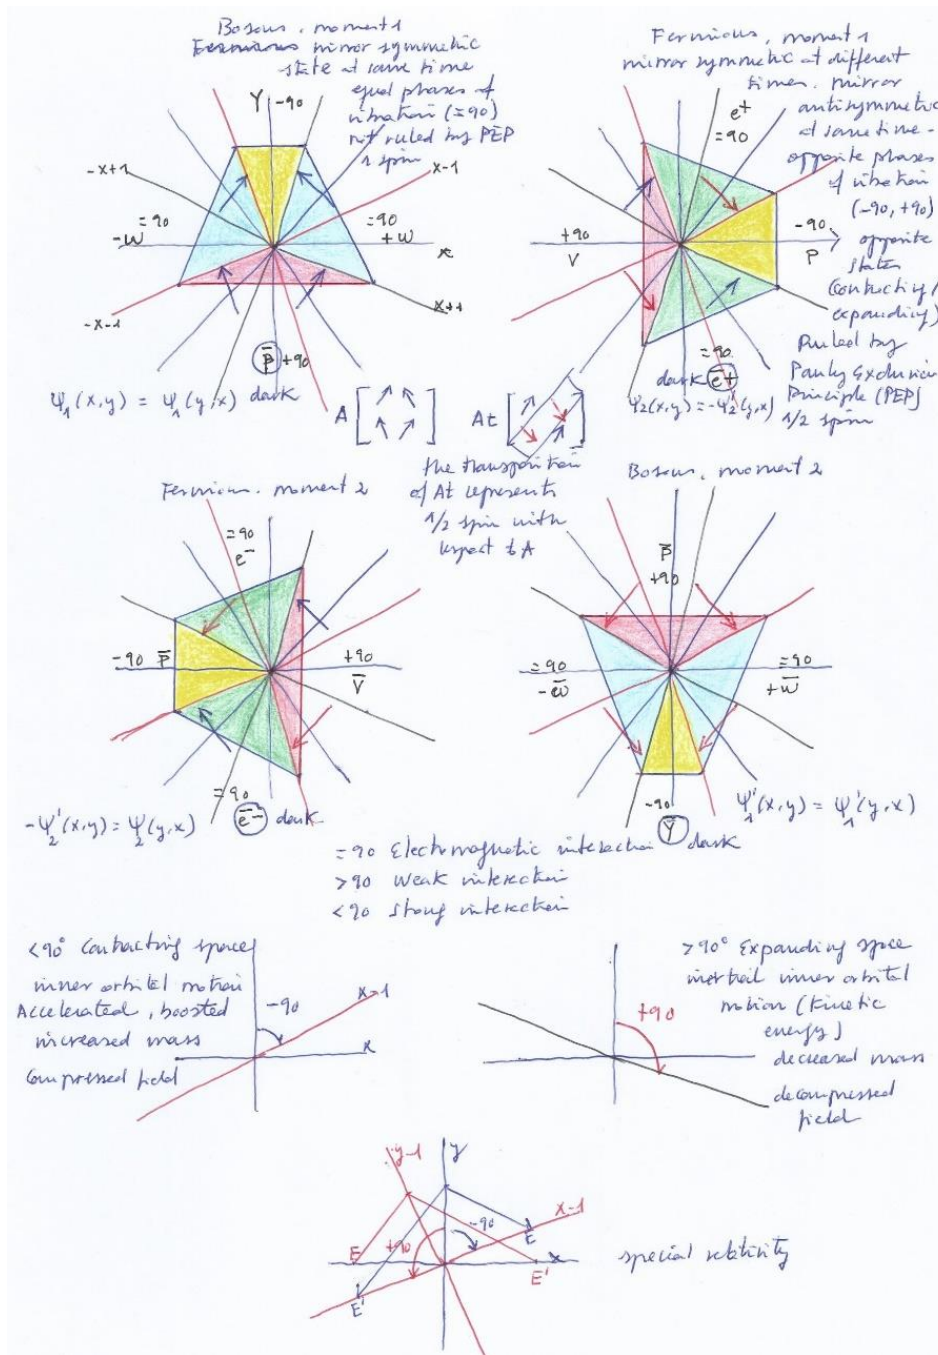 Bosons. moment 1
Fermions mirror symmetric
state at same time
equal phases of
vibration (=90)
not ruled by PEP
1 spin
Y -90
-x+1
x-1
=90
-w
=90
+w
x
-x-1
x+1
p̅ +90
dark
Ψ1(x,y) = Ψ1(y,x)
Fermions, moment 1
mirror symmetric at different
times. mirror
antisymmetric
at same time -
opposite phases
of vibration
(-90, +90)
opposite
states
(contracting/
expanding)
Ruled by
Pauly Exclusion
Principle (PEP)
1/2 spin
e+
=90
+90
V
-90
P
=90
dark e̅+
Ψ2(x,y) = -Ψ2'(y,x)
A
At
the transposition
of At represents
1/2 spin with
respect to A
Fermions. moment 2
=90
e-
-90 p̅
+90
V̅
=90
e̅- dark
-Ψ2'(x,y) = Ψ2(y,x)
Bosons, moment 2
p̅
+90
=90
-w̅
=90
+w̅
-90
Y̅ dark
Ψ1'(x,y) = Ψ1'(y,x)
=90 Electromagnetic interaction
>90 Weak interaction
<90 Strong interaction
<90° Contracting space
inner orbital motion
Accelerated, boosted
increased mass
Compressed field
-90
x-1
x
>90° Expanding space
inertial inner orbital
motion (kinetic
energy)
decreased mass
decompressed
field
+90
y-1
y
x-1
+90
-90
E
E
x
E'
E'
special relativity